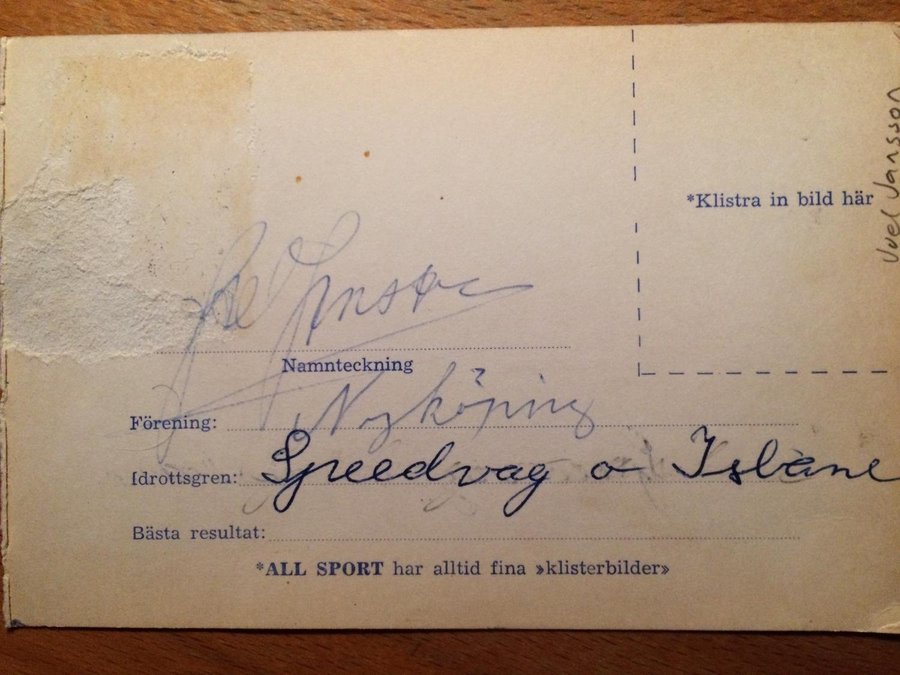 *Klistra in bild här
Joel Jansson
Joel Jansson
Namnteckning
Förening: Nyköping
Idrottsgren: Speedvag o Isbane
Bästa resultat:
*ALL SPORT har alltid fina »klisterbilder»